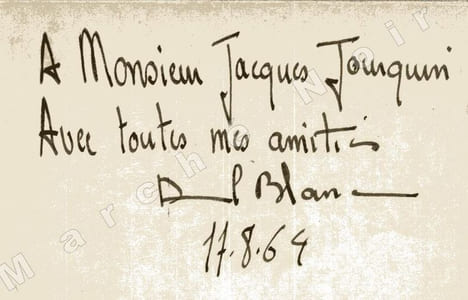 A Monsieur Jacques Jourquin
Avec toutes mes amitiés
Blanc
17.8.64
Marche Noir